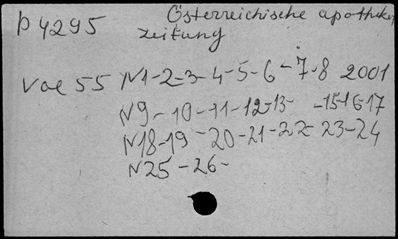 P 4295
Österreichische apotheker
zeitung
Vol 55 N1-2-3-4-5-6-7-8 2001
N9-10-11-12-13- -15-16-17
N18-19-20-21-22-23-24
N25-26-